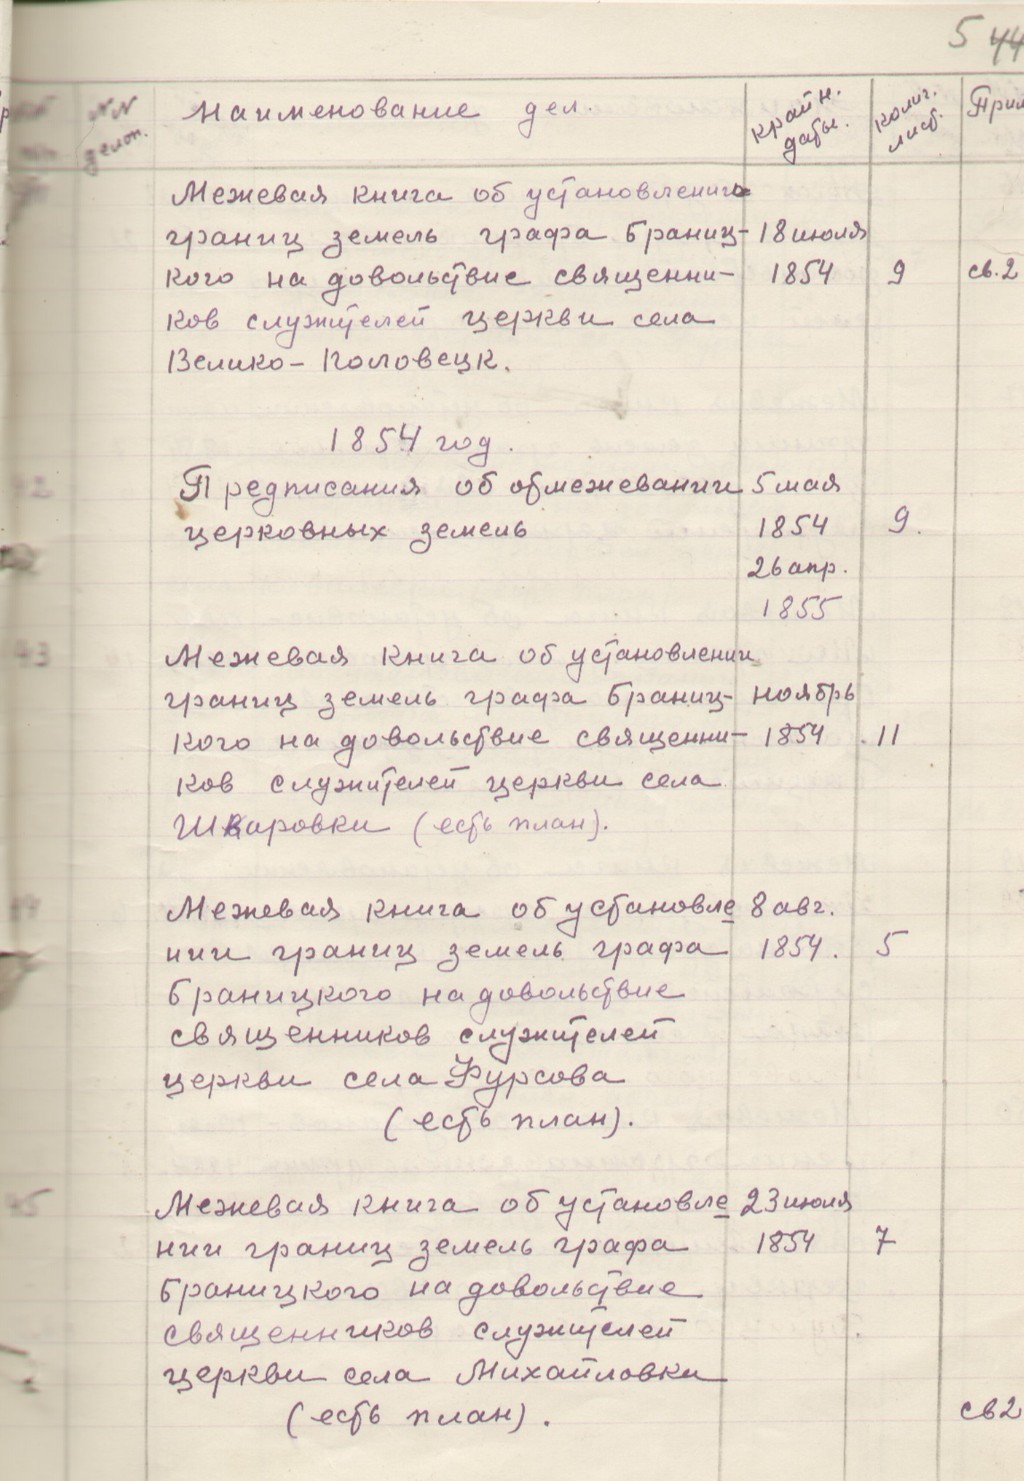 5 44
№№ делоп. Наименование дел. Крайн. даты. колич. лист. Прим
Межевая книга об установлении
границ земель графа Браниц- 18 июля
кого на довольствие священни- 1854 9 св.2
ков служителей церкви села
Велико-Половецк.
1854 год.
42 Предписания об обмежевании 5 мая
церковных земель 1854 9.
26 апр.
1855
43 Межевая книга об установлении
границ земель графа Браниц- ноябрь
кого на довольствие священни- 1854 11
ков служителей церкви села
Шкаровки (есть план).
44 Межевая книга об установле 8 авг.
нии границ земель графа 1854. 5
Браницкого на довольствие
священников служителей
церкви села Фурсова
(есть план).
45 Межевая книга об установле 23 июля
нии границ земель графа 1854 7
Браницкого на довольствие
священников служителей
церкви села Михайловки
(есть план). св2